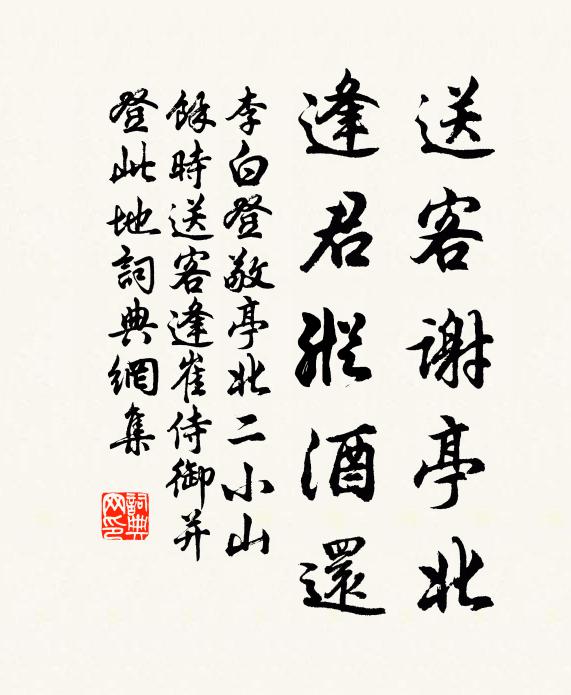 送客謝亭北
逢君縱酒還
李白登敬亭北二小山
餘時送客逢崔侍御并
登此地詞典網集
詞典网印